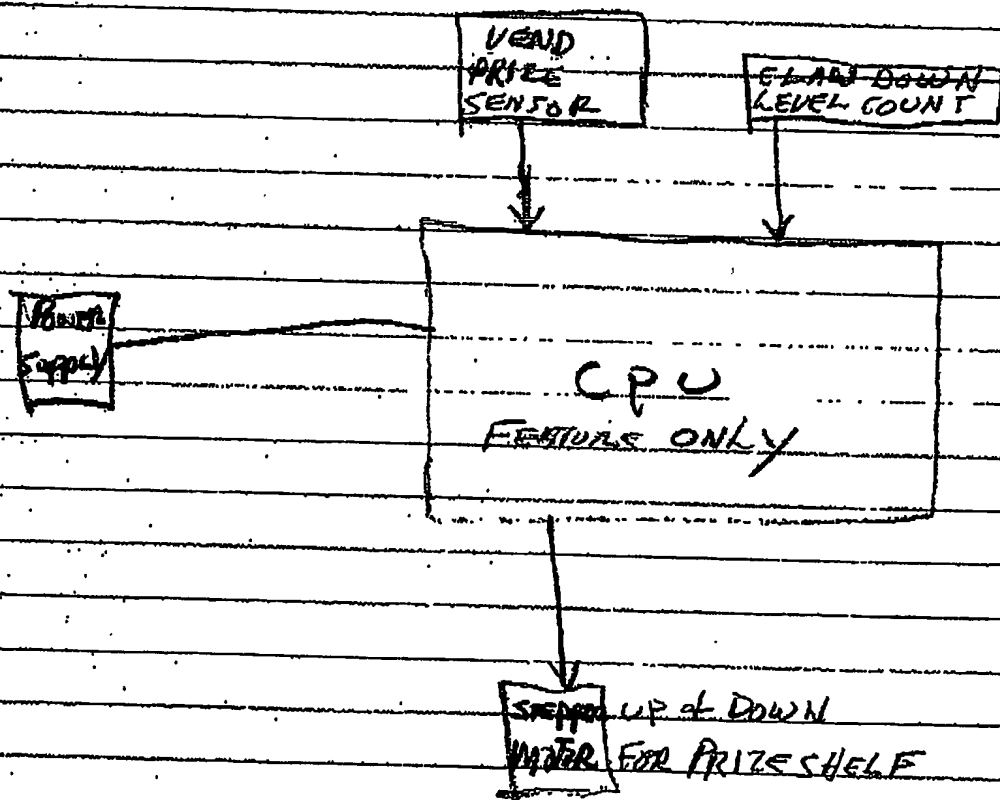 VEND
PRIZE
SENSOR
CLAW DOWN
LEVEL COUNT
Power
Supply
CPU
FEATURE ONLY
STEPPER UP & DOWN
MOTOR FOR PRIZE SHELF